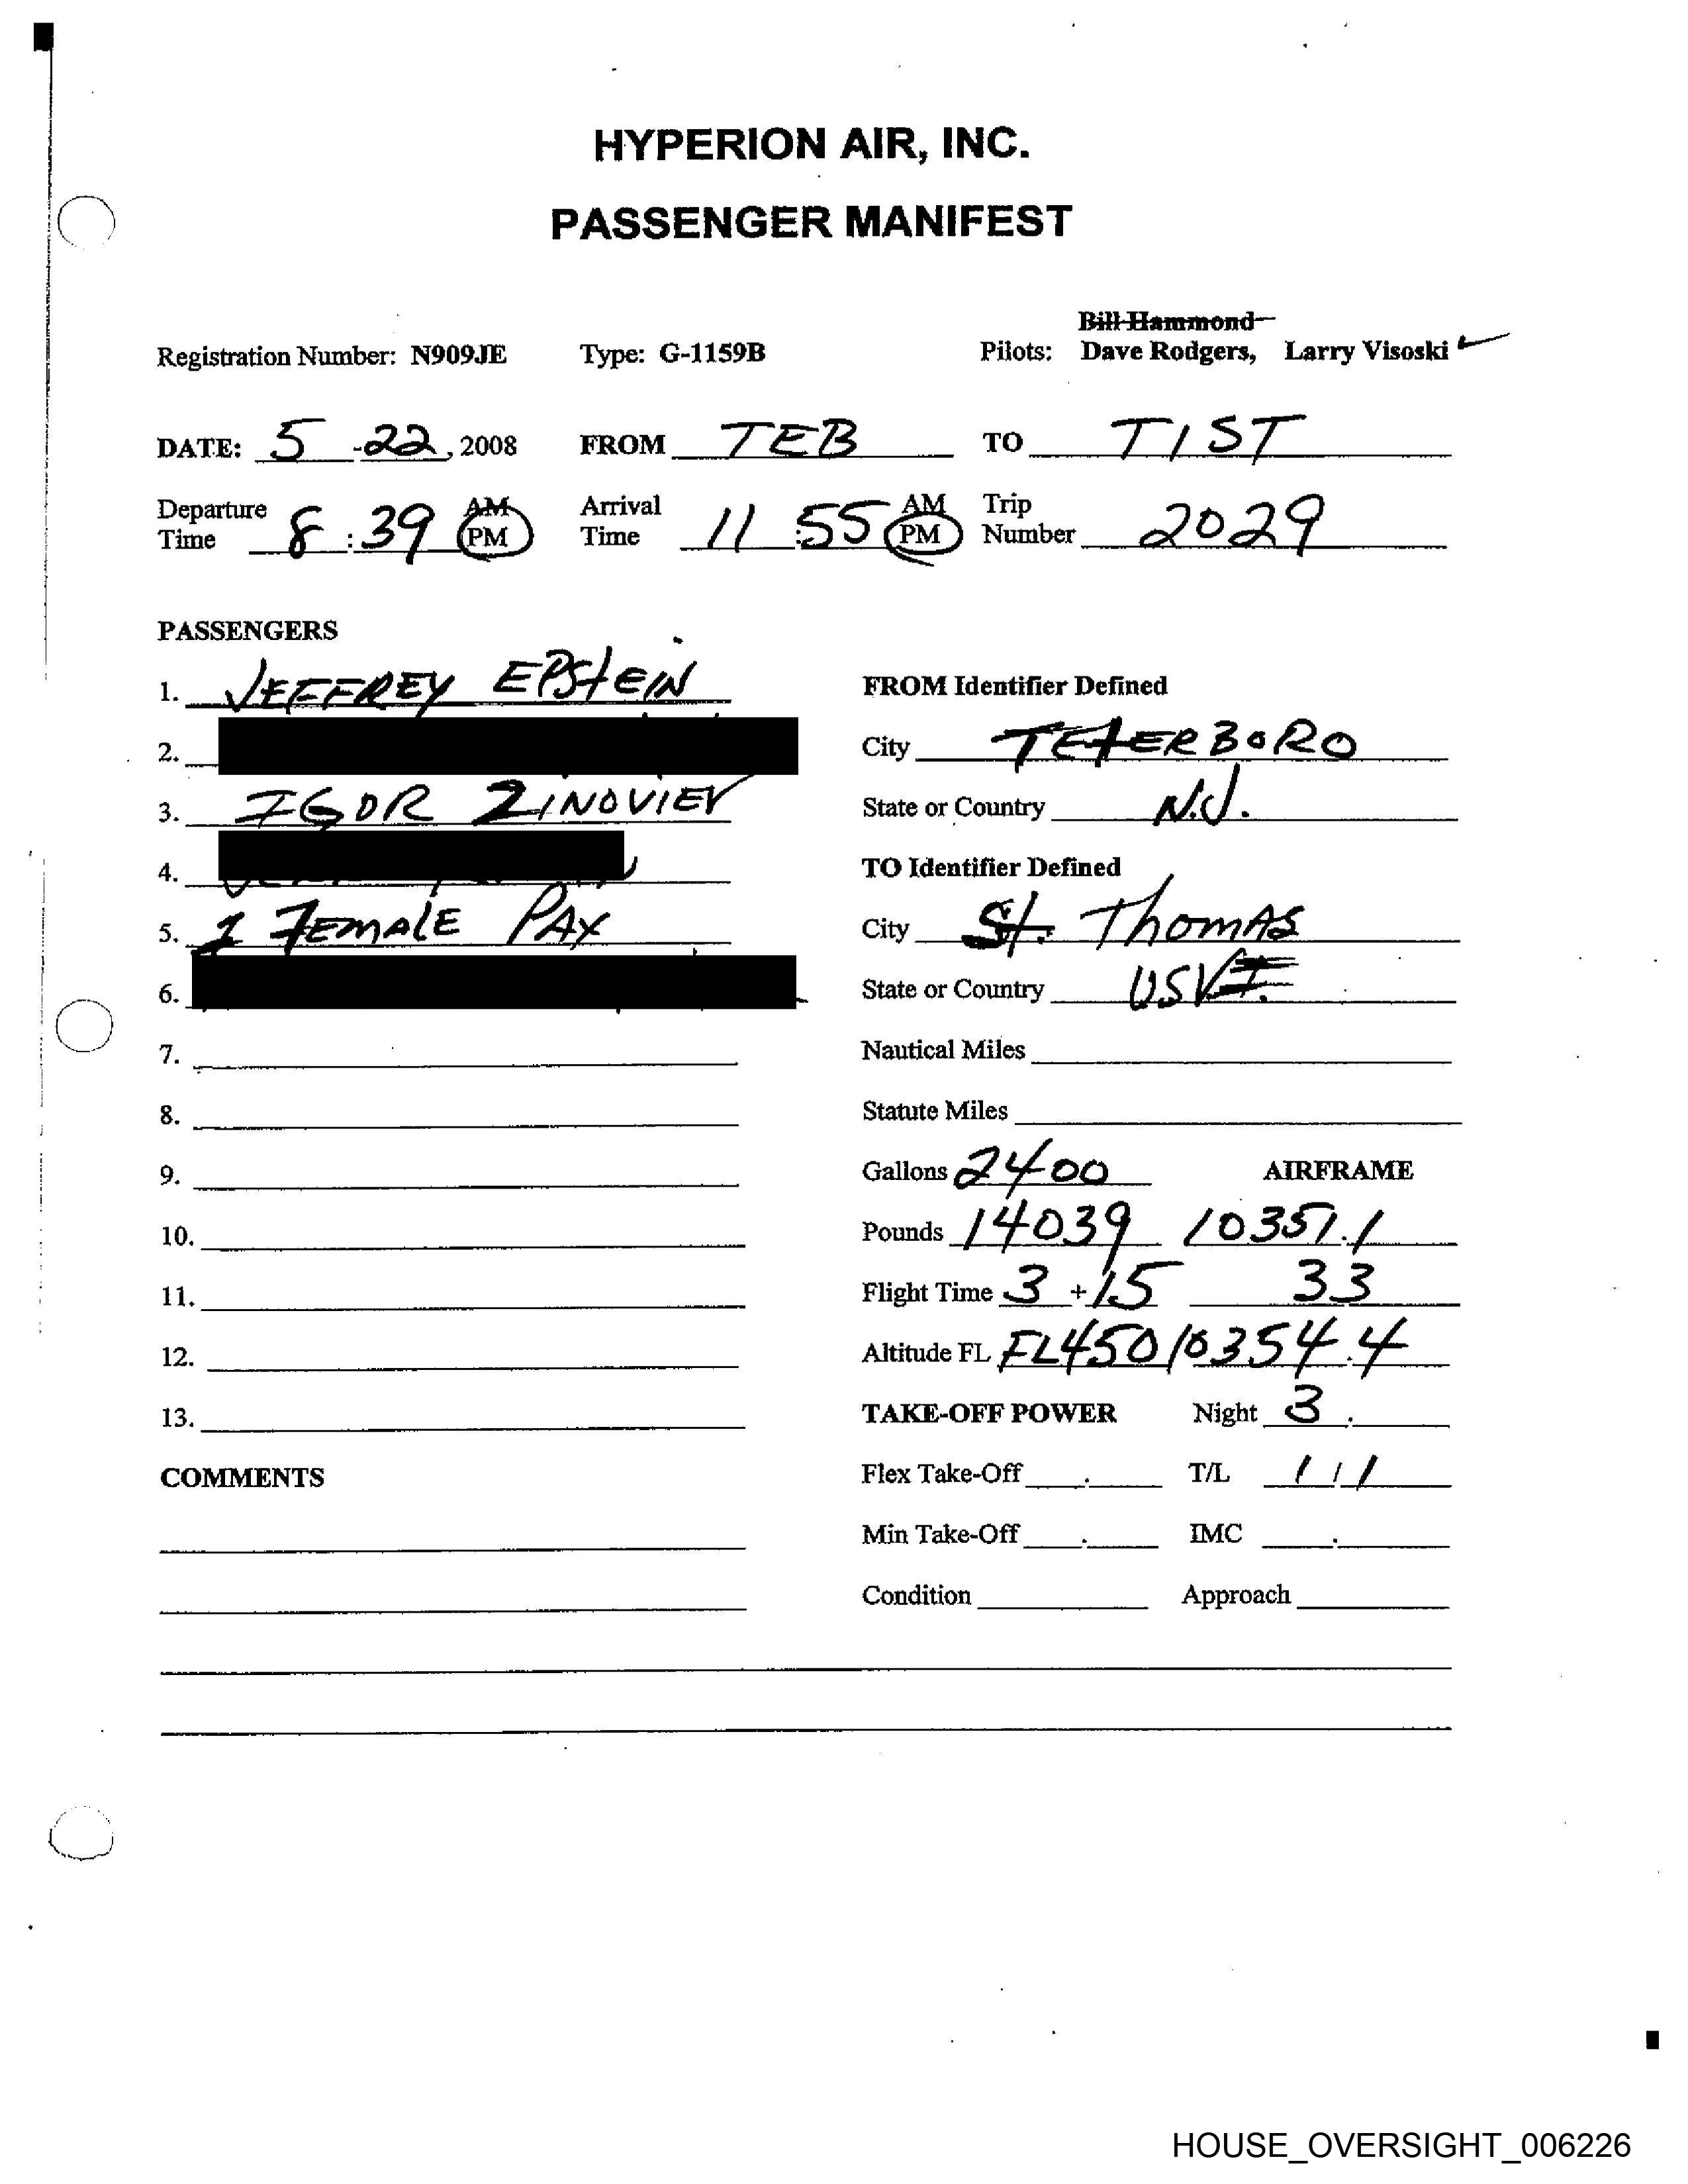 HYPERION AIR, INC.
PASSENGER MANIFEST
Bill Hammond
Registration Number: N909JE Type: G-1159B Pilots: Dave Rodgers, Larry Visoski
DATE: 5-22, 2008 FROM TEB TO TIST
Departure Time 8:39 AM PM Arrival Time 11:55 AM PM Trip Number 2029
PASSENGERS
1. JEFFREY EPStEIN
FROM Identifier Defined
2.
City TEtERBORO
3. IGOR ZINOVIEV
State or Country N.J.
4.
TO Identifier Defined
5. 1 FEMALE PAX
City St. ThomAS
6.
State or Country USVI.
7.
Nautical Miles
8.
Statute Miles
9.
Gallons 2400 AIRFRAME
10.
Pounds 14039 10351.1
11.
Flight Time 3 + 15 33
12.
Altitude FL FL450 10354.4
13.
TAKE-OFF POWER Night 3 .
COMMENTS
Flex Take-Off . T/L 1 / 1
Min Take-Off . IMC .
Condition Approach
HOUSE_OVERSIGHT_006226